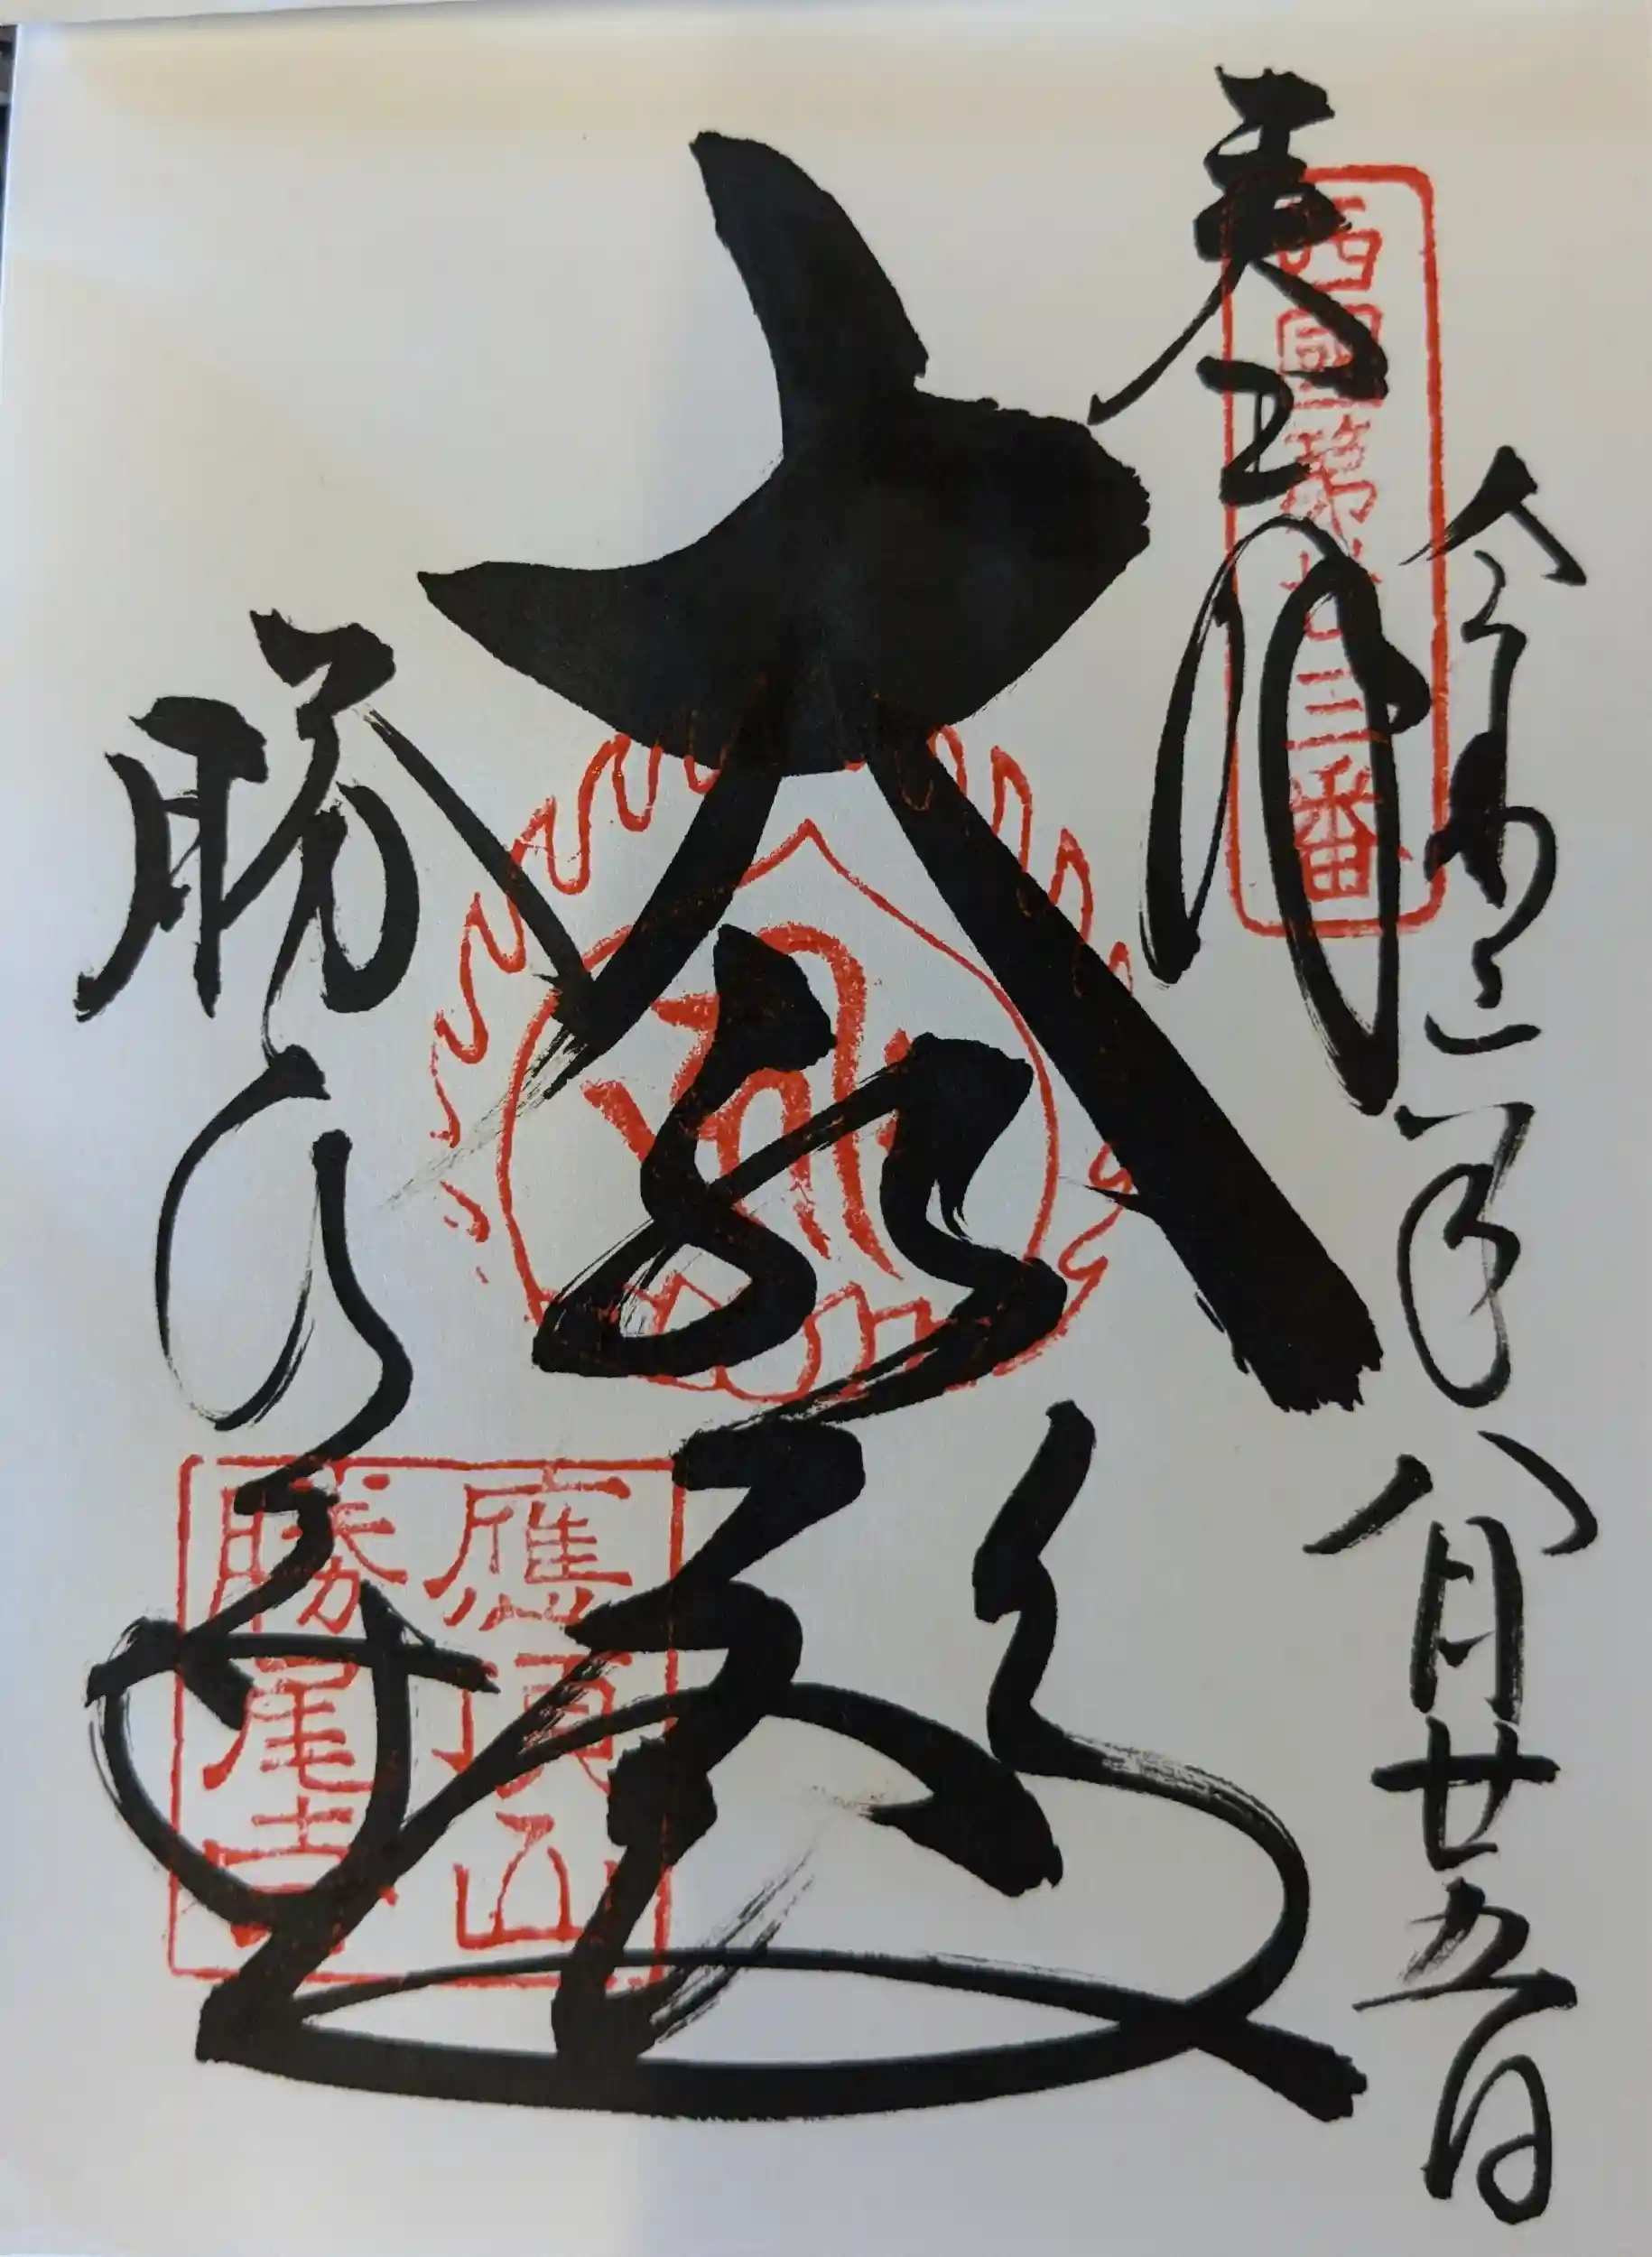 令和年八月廿五日
奉拝
西國第廿三番
大悲殿
應頂山
勝尾寺
勝尾寺